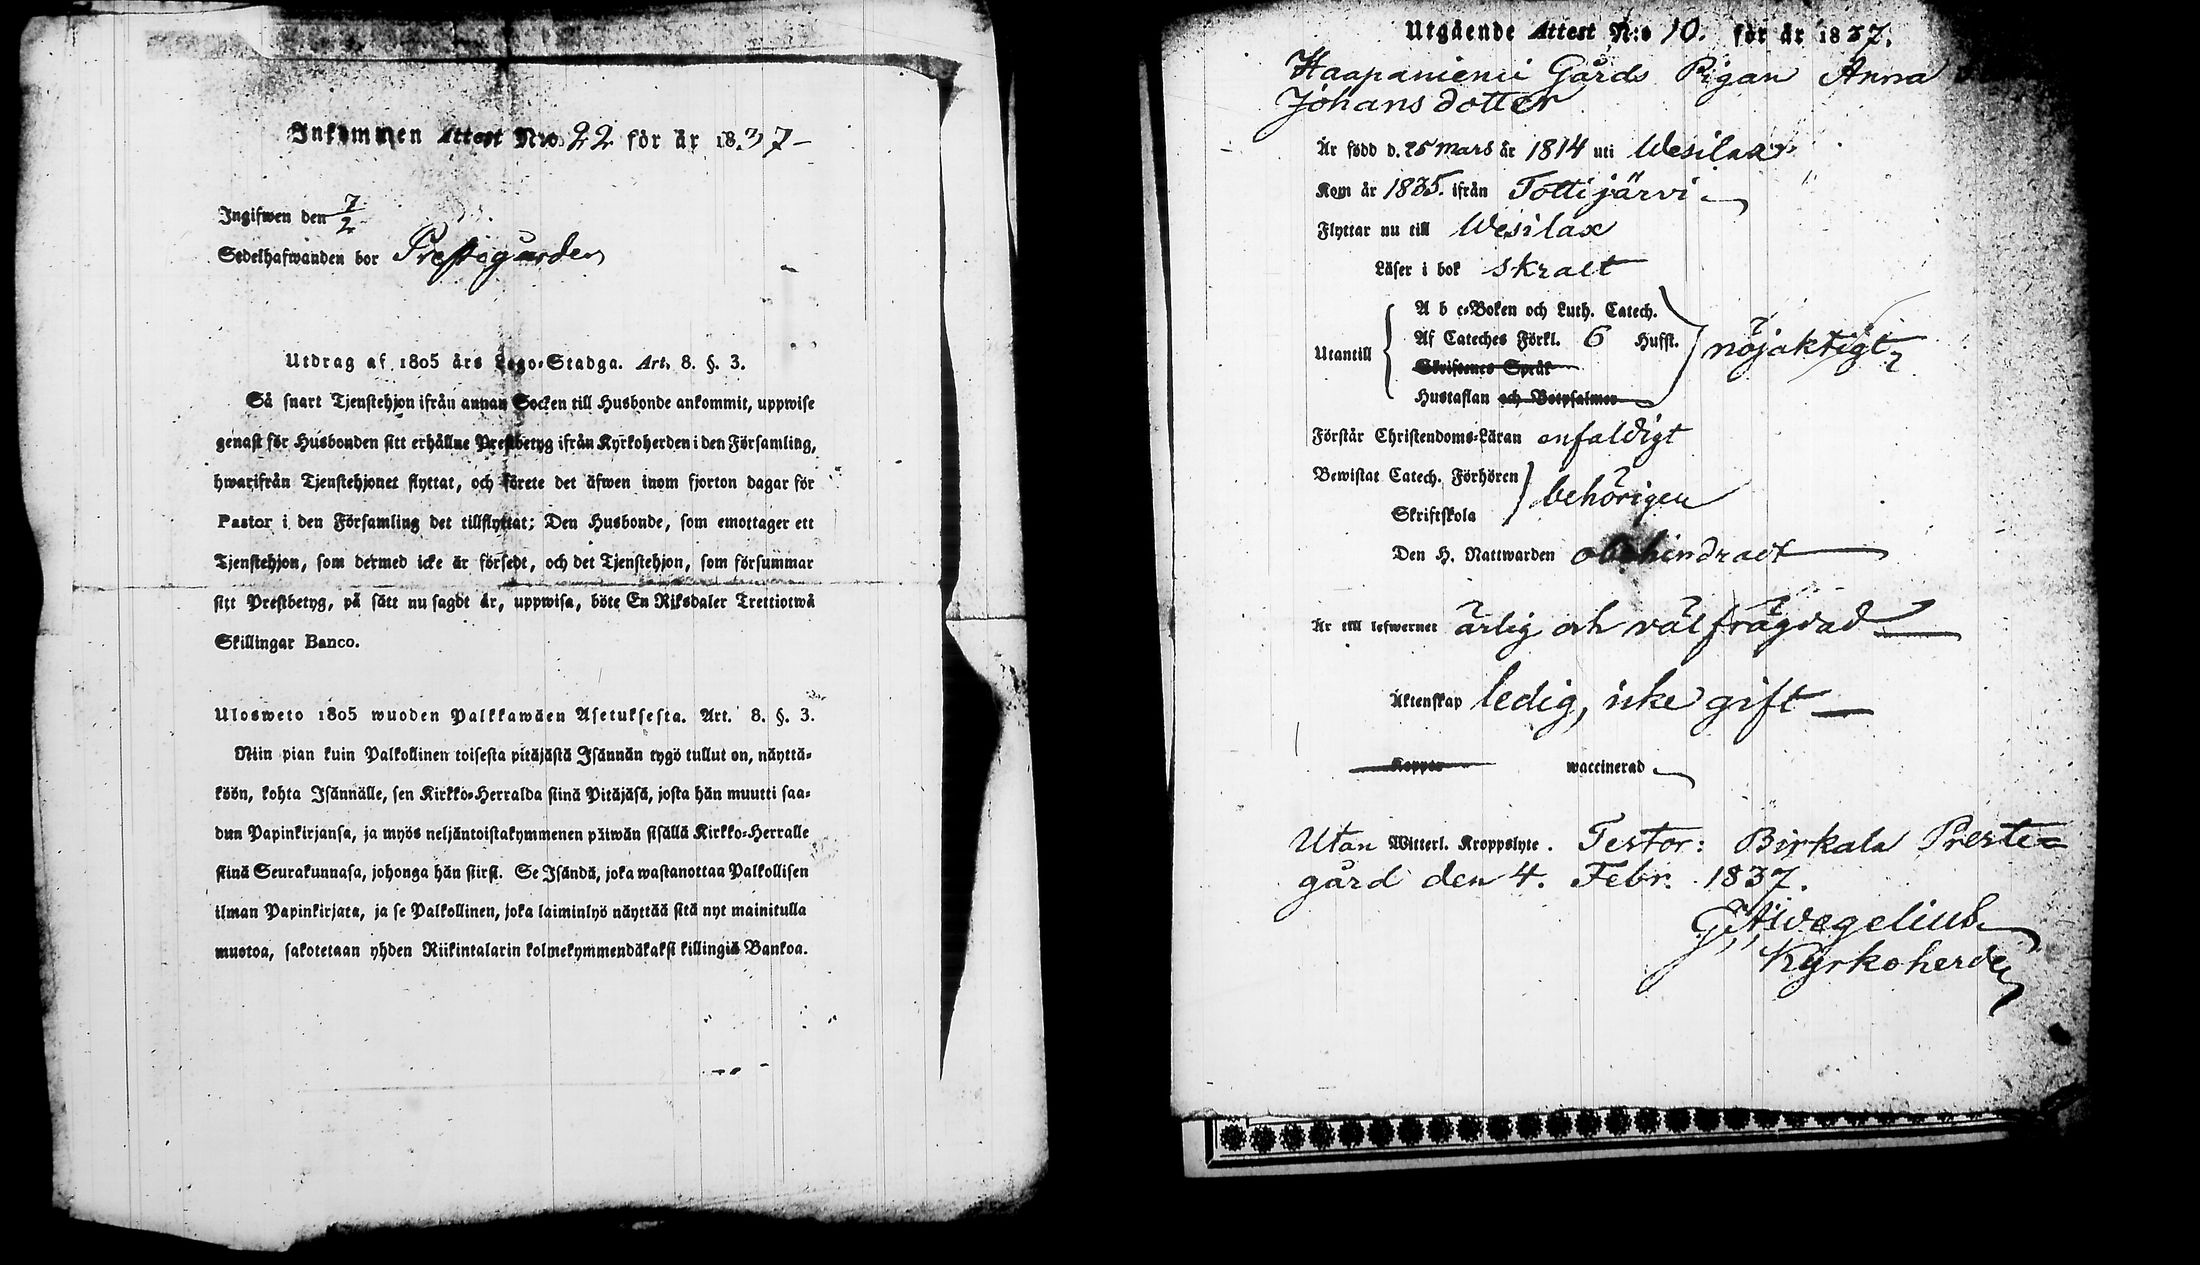 Inkommen Attest N:o 22 för år 1837
Ingifwen den 7/2
Sedelhafwanden bor Prestegården
Utdrag af 1805 års Lego-Stadga. Art. 8. §. 3.
Så snart Tjenstehjon ifrån annan Socken till Husbonde ankommit, uppwise
genast för Husbonden sitt erhållne Prestbetyg ifrån Kyrkoherden i den Församling,
hwarifrån Tjenstehjonet flyttat, och förete det äfwen inom fjorton dagar för
Pastor i den Församling det tillflyttat; Den Husbonde, som emottager ett
Tjenstehjon, som dermed icke är försedt, och det Tjenstehjon, som försummar
sitt Prestbetyg, på sätt nu sagdt är, uppwisa, böte En Riksdaler Trettiotwå
Skillingar Banco.
Ulosweto 1805 wuoden Palkkawäen Asetuksesta. Art. 8. §. 3.
Niin pian kuin Palkollinen toisesta pitäjästä Isännän tygö tullut on, näyttä-
köön, kohta Isännälle, sen Kirkko-Herralda siinä Pitäjäsä, josta hän muutti saa-
dun Papinkirjansa, ja myös neljäntoistakymmenen päiwän sisällä Kirkko-Herralle
siinä Seurakunnasa, johonga hän siirsi. Se Isändä, joka wastanottaa Palkollisen
ilman Papinkirjata, ja se Palkollinen, joka laiminlyö näyttää sitä nyt mainitulla
muotoa, sakotetaan yhden Riikintalarin kolmekymmendäkaksi killingiä Bankoa.
Utgående Attest N:o 10. för år 1837.
Haapaniemi Gårds Pigan Anna
Johansdotter
Är född d. 25 Mars år 1814 uti Wesilax
Kom år 1835. ifrån Tottijärvi
Flyttar nu till Wesilax
Läser i bok skralt
A b c-Boken och Luth. Catech.
Utantill Af Cateches Förkl. 6 Hufst. nöjaktigt
Skriftenes Språk
Hustaflan och Botpsalmer
Förstår Christendoms-Läran enfaldigt
Bewistat Catech. Förhören behörigen
Skriftskola
Den H. Nattwarden obehindradt
Är till lefwernet ärlig och välfrägdad
Äktenskap ledig, icke gift
Koppor waccinerad
Utan Witterl. Kroppslyte. Testor: Birkala Preste-
gård den 4. Febr. 1837.
G. Avegelius
Kyrkoherde